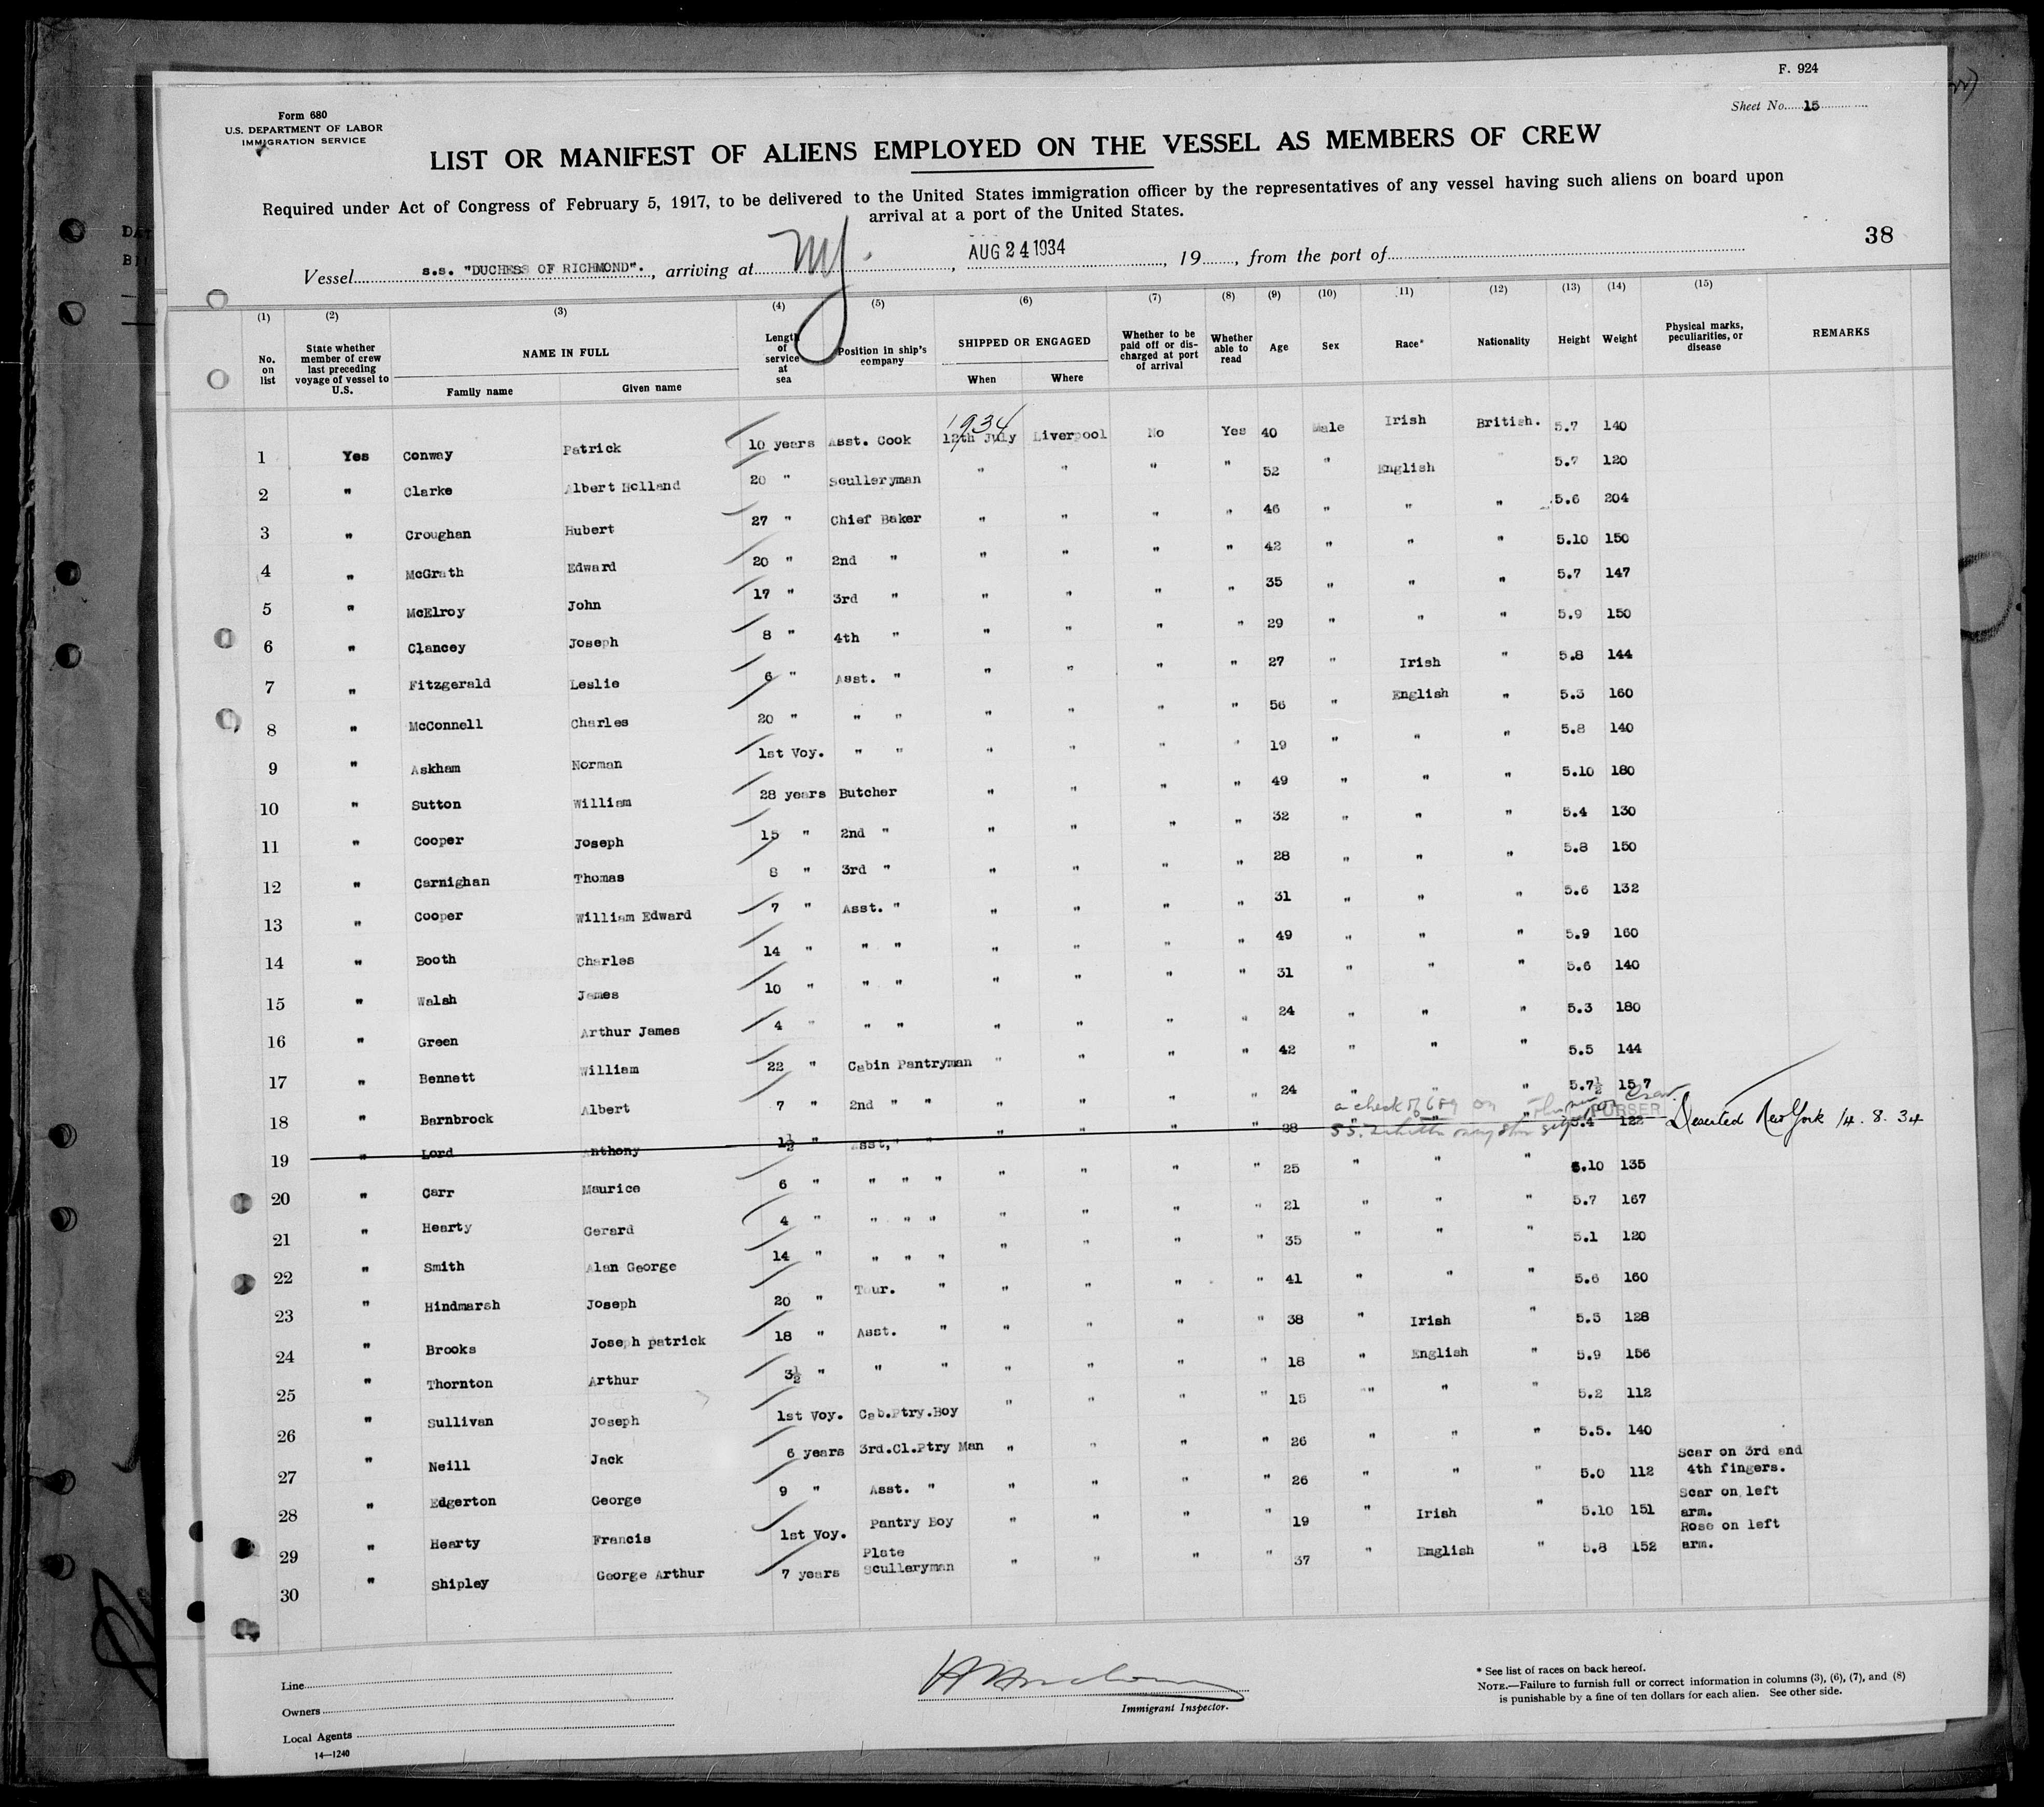 F. 924
Form 680
U.S. DEPARTMENT OF LABOR
IMMIGRATION SERVICE
Sheet No. 15
LIST OR MANIFEST OF ALIENS EMPLOYED ON THE VESSEL AS MEMBERS OF CREW
Required under Act of Congress of February 5, 1917, to be delivered to the United States immigration officer by the representatives of any vessel having such aliens on board upon
arrival at a port of the United States.
38
Vessel s.s. "DUCHESS OF RICHMOND"., arriving at NY, AUG 24 1934, 19, from the port of
(1) (2) (3) (4) (5) (6) (7) (8) (9) (10) (11) (12) (13) (14) (15)
No. on list State whether member of crew last preceding voyage of vessel to U.S. NAME IN FULL Length of service at sea Position in ship's company SHIPPED OR ENGAGED Whether to be paid off or discharged at port of arrival Whether able to read Age Sex Race* Nationality Height Weight Physical marks, peculiarities, or disease REMARKS
Family name Given name When Where
1934
1 Yes Conway Patrick 10 years Asst. Cook 12th July Liverpool No Yes 40 Male Irish British. 5.7 140
2 " Clarke Albert Holland 20 " Sculleryman " " " " 52 " English " 5.7 120
3 " Croughan Hubert 27 " Chief Baker " " " " 46 " " " 5.6 204
4 " McGrath Edward 20 " 2nd " " " " " 42 " " " 5.10 150
5 " McElroy John 17 " 3rd " " " " " 35 " " " 5.7 147
6 " Clancey Joseph 8 " 4th " " " " " 29 " " " 5.9 150
7 " Fitzgerald Leslie 6 " Asst. " " " " " 27 " Irish " 5.8 144
8 " McConnell Charles 20 " " " " " " " 56 " English " 5.3 160
9 " Askham Norman 1st Voy. " " " " " " 19 " " " 5.8 140
10 " Sutton William 28 years Butcher " " " " 49 " " " 5.10 180
11 " Cooper Joseph 15 " 2nd " " " " " 32 " " " 5.4 130
12 " Carnighan Thomas 8 " 3rd " " " " " 28 " " " 5.8 150
13 " Cooper William Edward 7 " Asst. " " " " " 31 " " " 5.6 132
14 " Booth Charles 14 " " " " " " " 49 " " " 5.9 160
15 " Walsh James 10 " " " " " " " 31 " " " 5.6 140
16 " Green Arthur James 4 " " " " " " " 24 " " " 5.3 180
17 " Bennett William 22 " Cabin Pantryman " " " " 42 " " " 5.5 144
18 " Barnbrock Albert 7 " 2nd " " " " " " 24 " " " 5.7½ 157
PURSER
19 " Lord Anthony 1½ " Asst. " " " " " 28 5.4 122 Deserted New York 14.8.34
20 " Carr Maurice 6 " " " " " " " " 25 " " " 5.10 135
21 " Hearty Gerard 4 " " " " " " " " 21 " " " 5.7 167
22 " Smith Alan George 14 " " " " " " " " 35 " " " 5.1 120
23 " Hindmarsh Joseph 20 " Tour. " " " " " 41 " " " 5.6 160
24 " Brooks Joseph patrick 18 " Asst. " " " " " 38 " Irish " 5.5 128
25 " Thornton Arthur 3½ " " " " " " " 18 " English " 5.9 156
26 " Sullivan Joseph 1st Voy. Cab.Ptry.Boy " " " " 15 " " " 5.2 112
27 " Neill Jack 6 years 3rd.Cl.Ptry Man " " " " 26 " " " 5.5. 140
28 " Edgerton George 9 " Asst. " " " " " 26 " " " 5.0 112 Scar on 3rd and 4th fingers.
29 " Hearty Francis 1st Voy. Pantry Boy " " " " 19 " Irish " 5.10 151 Scar on left arm.
30 " Shipley George Arthur 7 years Plate Sculleryman " " " " 37 " English " 5.8 152 Rose on left arm.
Line
Owners
Local Agents
14—1240
Immigrant Inspector.
* See list of races on back hereof.
NOTE.—Failure to furnish full or correct information in columns (3), (6), (7), and (8)
is punishable by a fine of ten dollars for each alien. See other side.